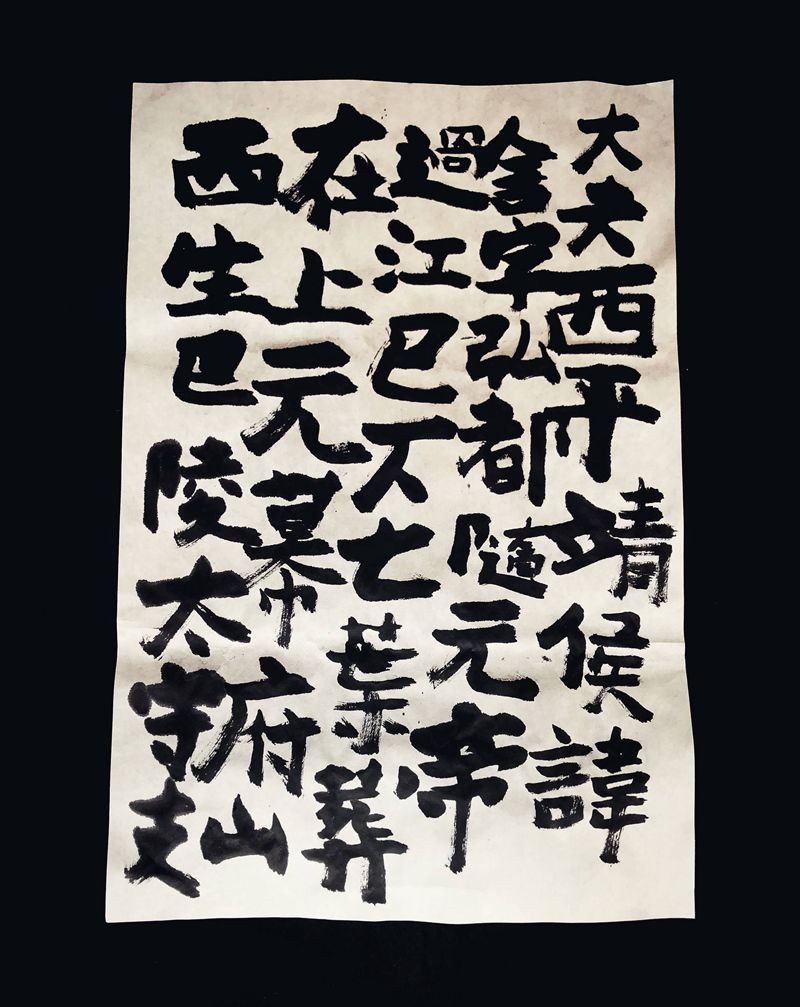 大夫西平靖侯諱
含字弘都隨元帝
過江已下七葉葬
在上元幕府山
西生巴陵太守支